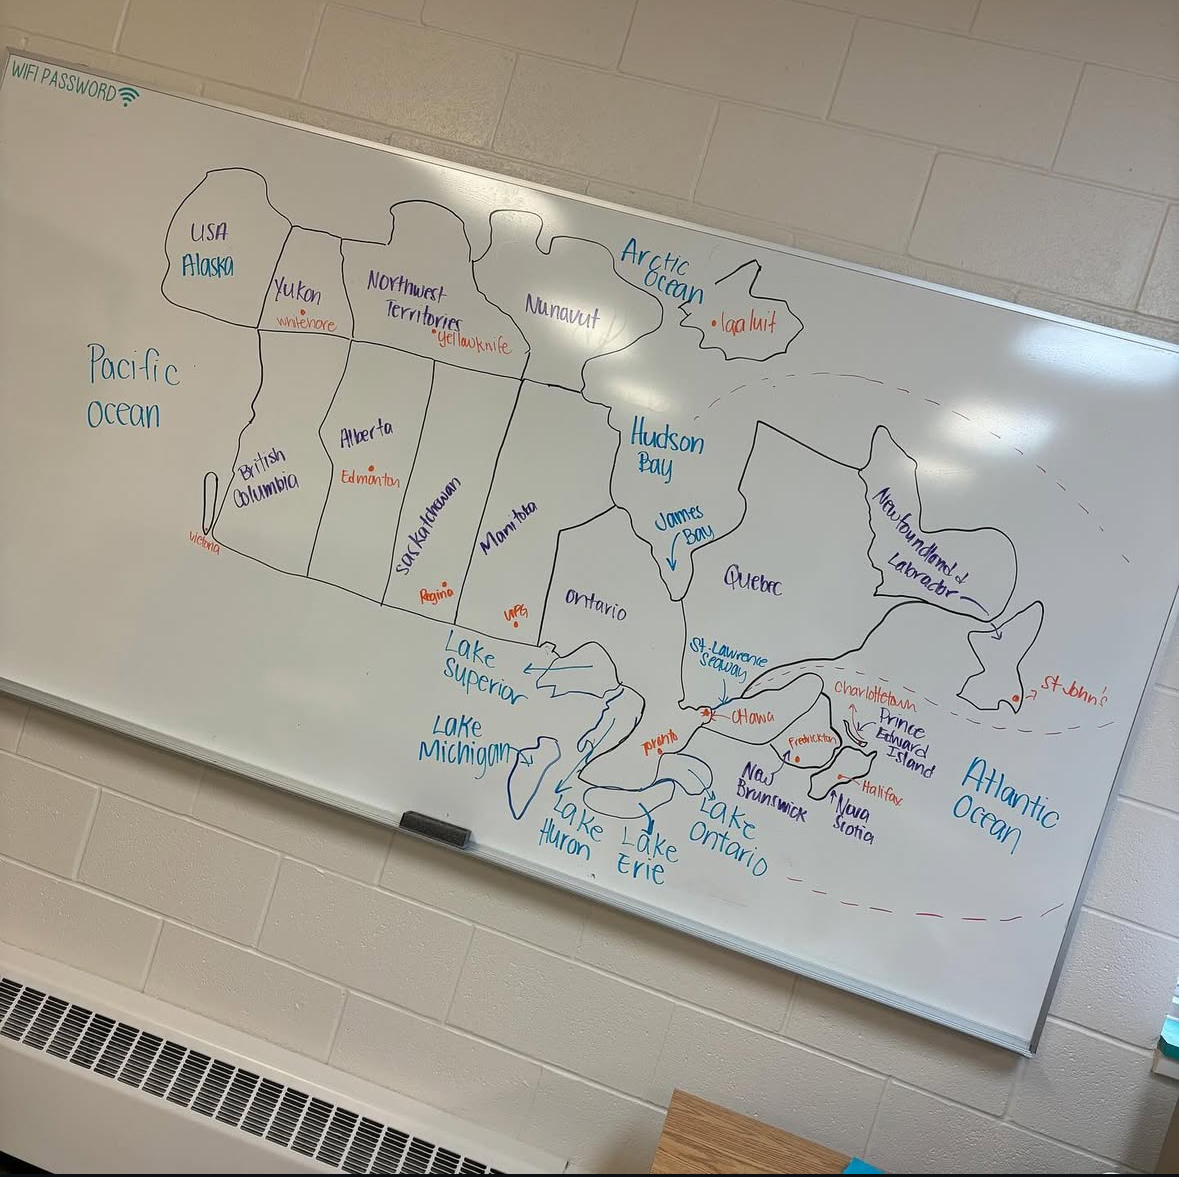 WIFI PASSWORD
USA
Alaska
Yukon
whitehore
Northwest
Territories
yellowknife
Nunavut
Arctic
Ocean
Iqaluit
Pacific
Ocean
British
Columbia
Victoria
Alberta
Edmonton
Saskatchewan
Regina
Manitoba
WPG
Ontario
Hudson
Bay
James
Bay
Quebec
Newfoundland &
Labrador
St John's
St-Lawrence
Seaway
Ottawa
Toronto
Charlottetown
Prince
Edward
Island
Fredrickton
New
Brunswick
Halifax
Nova
Scotia
Atlantic
Ocean
Lake
Superior
Lake
Michigan
Lake
Huron
Lake
Erie
Lake
Ontario